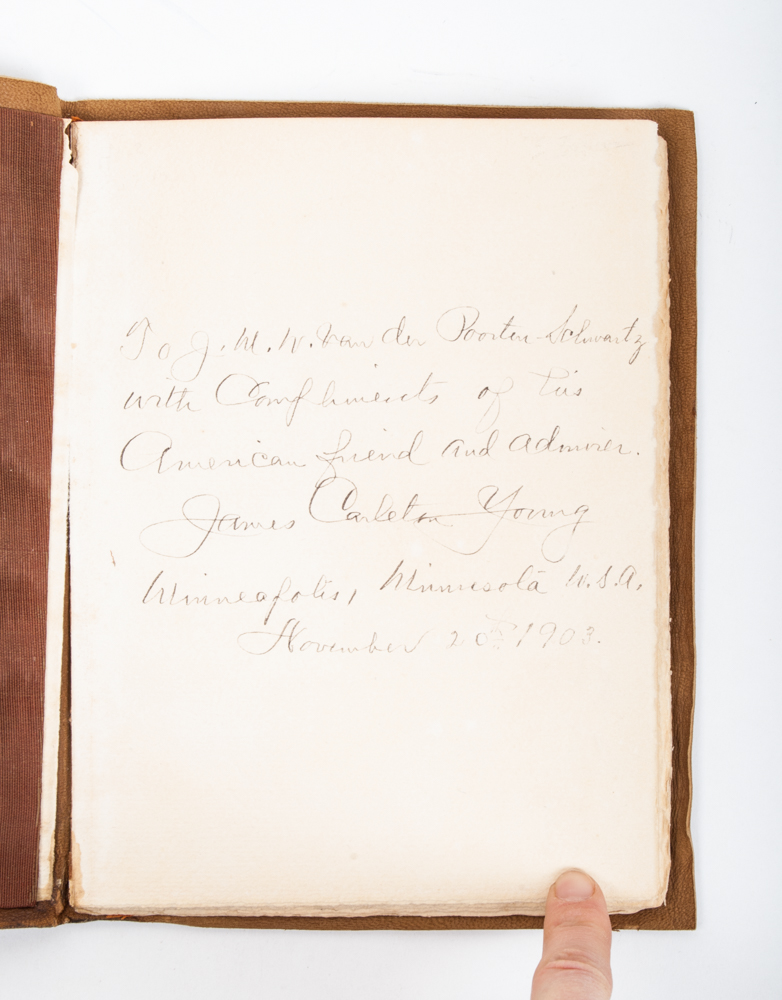 To J. M. W. Van der Poorten-Schwartz
with Compliments of his
American friend and admirer.
James Carleton Young
Minneapolis, Minnesota U.S.A.
November 20th 1903.